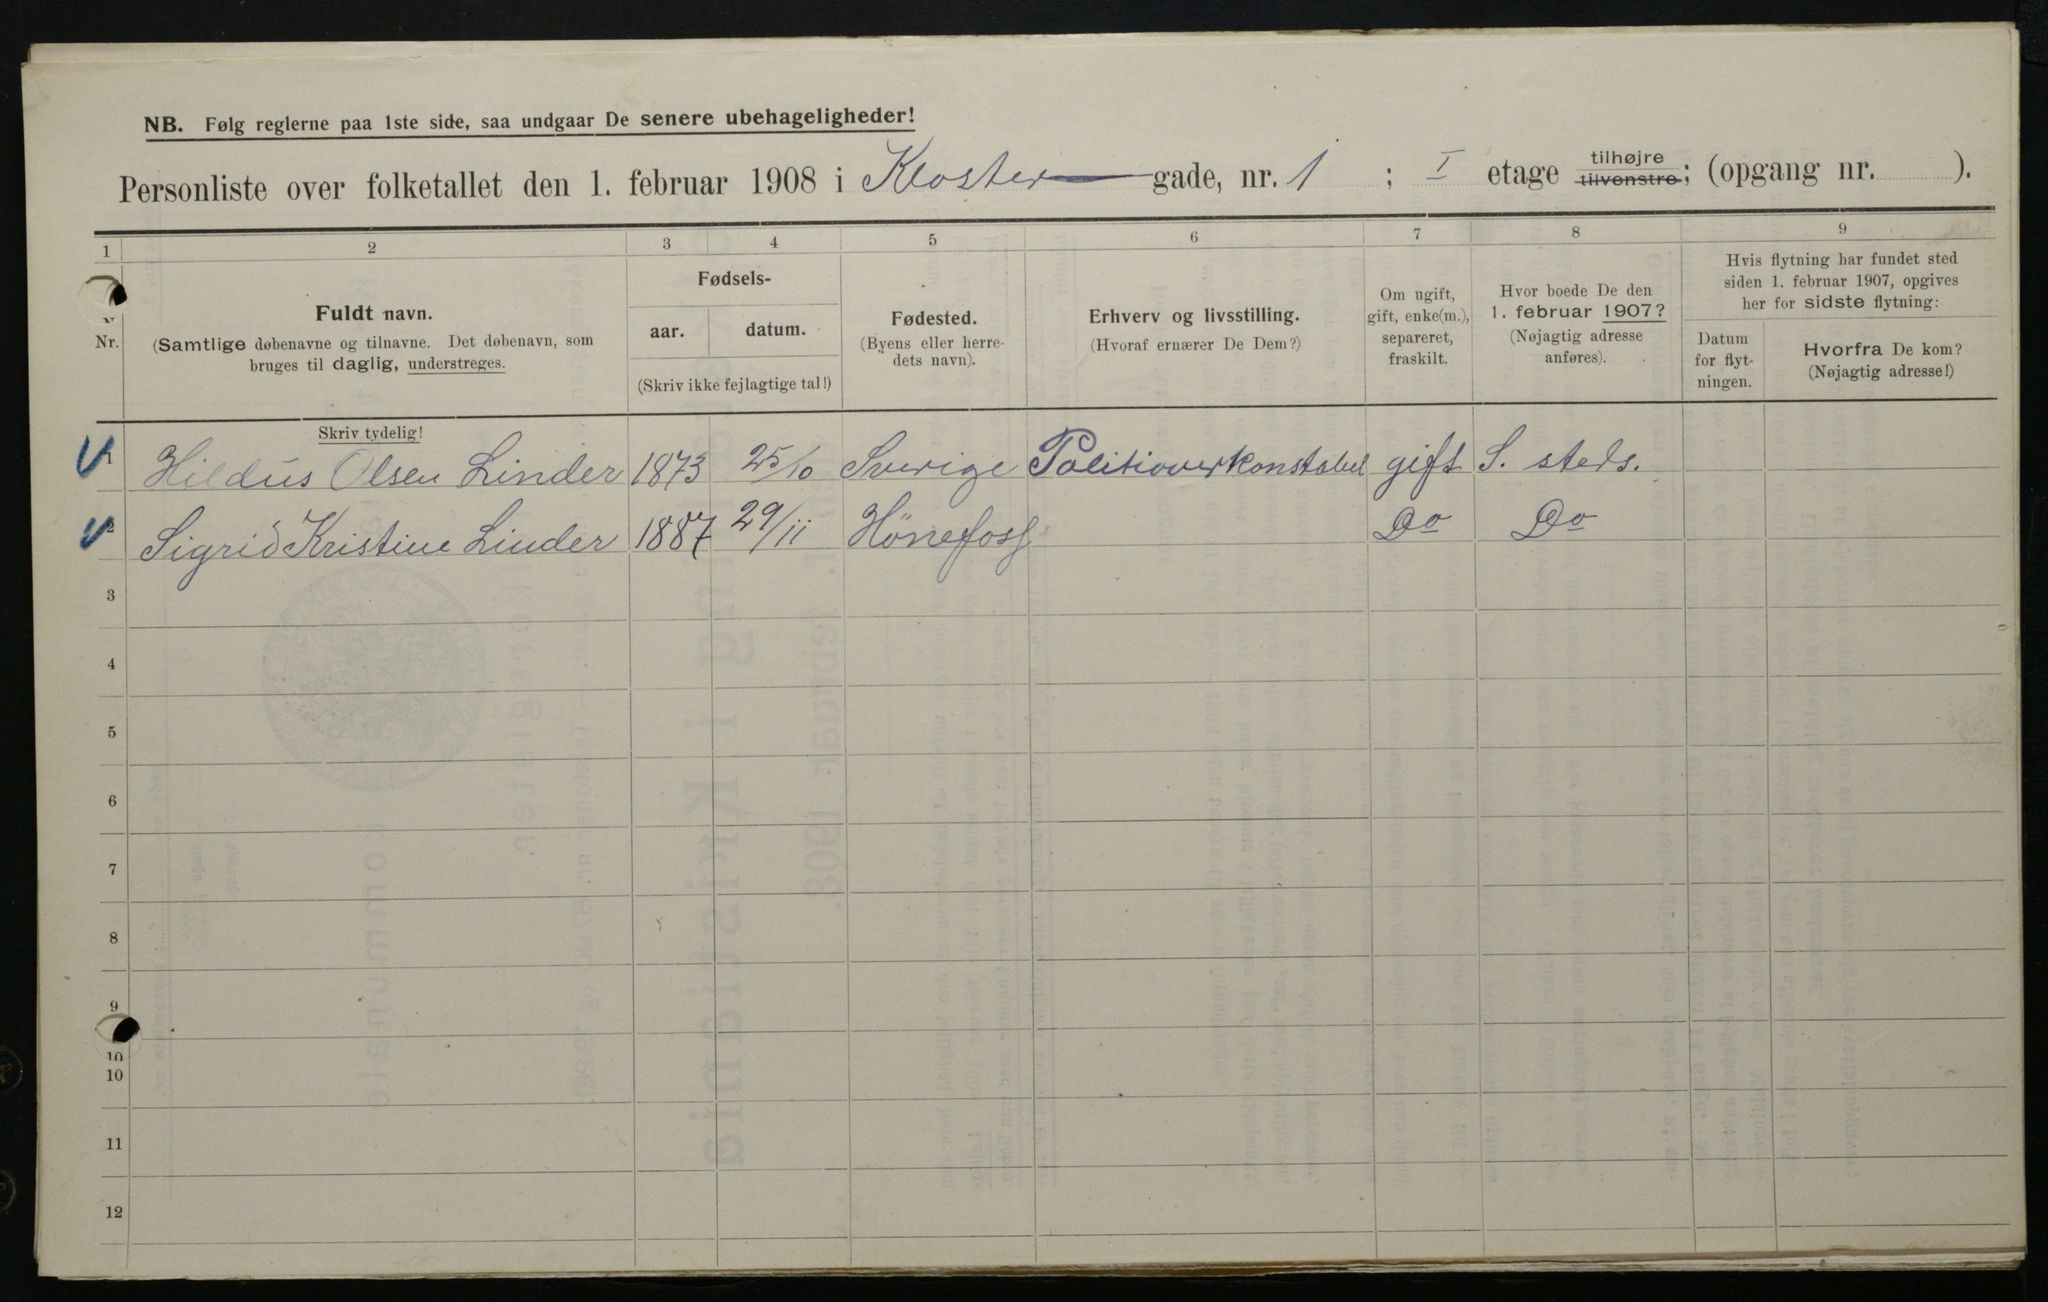 NB. Følg reglerne paa 1ste side, saa undgaar De senere ubehageligheder!
Personliste over folketallet den 1. februar 1908 i Kloster gade, nr. 1 ; I etage tilhøjre tilvenstre; (opgang nr. ).
1 2 3 4 5 6 7 8 9
Nr.
Fuldt navn.
(Samtlige døbenavne og tilnavne. Det døbenavn, som
bruges til daglig, understreges.
Skriv tydelig!
Fødsels-
aar. datum.
(Skriv ikke fejlagtige tal!)
Fødested.
(Byens eller herre-
dets navn).
Erhverv og livsstilling.
(Hvoraf ernærer De Dem?)
Om ugift,
gift, enke(m.),
separeret,
fraskilt.
Hvor boede De den
1. februar 1907?
(Nøjagtig adresse
anføres).
Hvis flytning har fundet sted
siden 1. februar 1907, opgives
her for sidste flytning:
Datum
for flyt-
ningen.
Hvorfra De kom?
(Nøjagtig adresse!)
1 Hildus Olsen Linder 1873 25/10 Sverige Politioverkonstabel gift S. steds.
2 Sigrid Kristine Linder 1887 29/11 Hönefoss Do Do
3
4
5
6
7
8
9
10
10
11
12